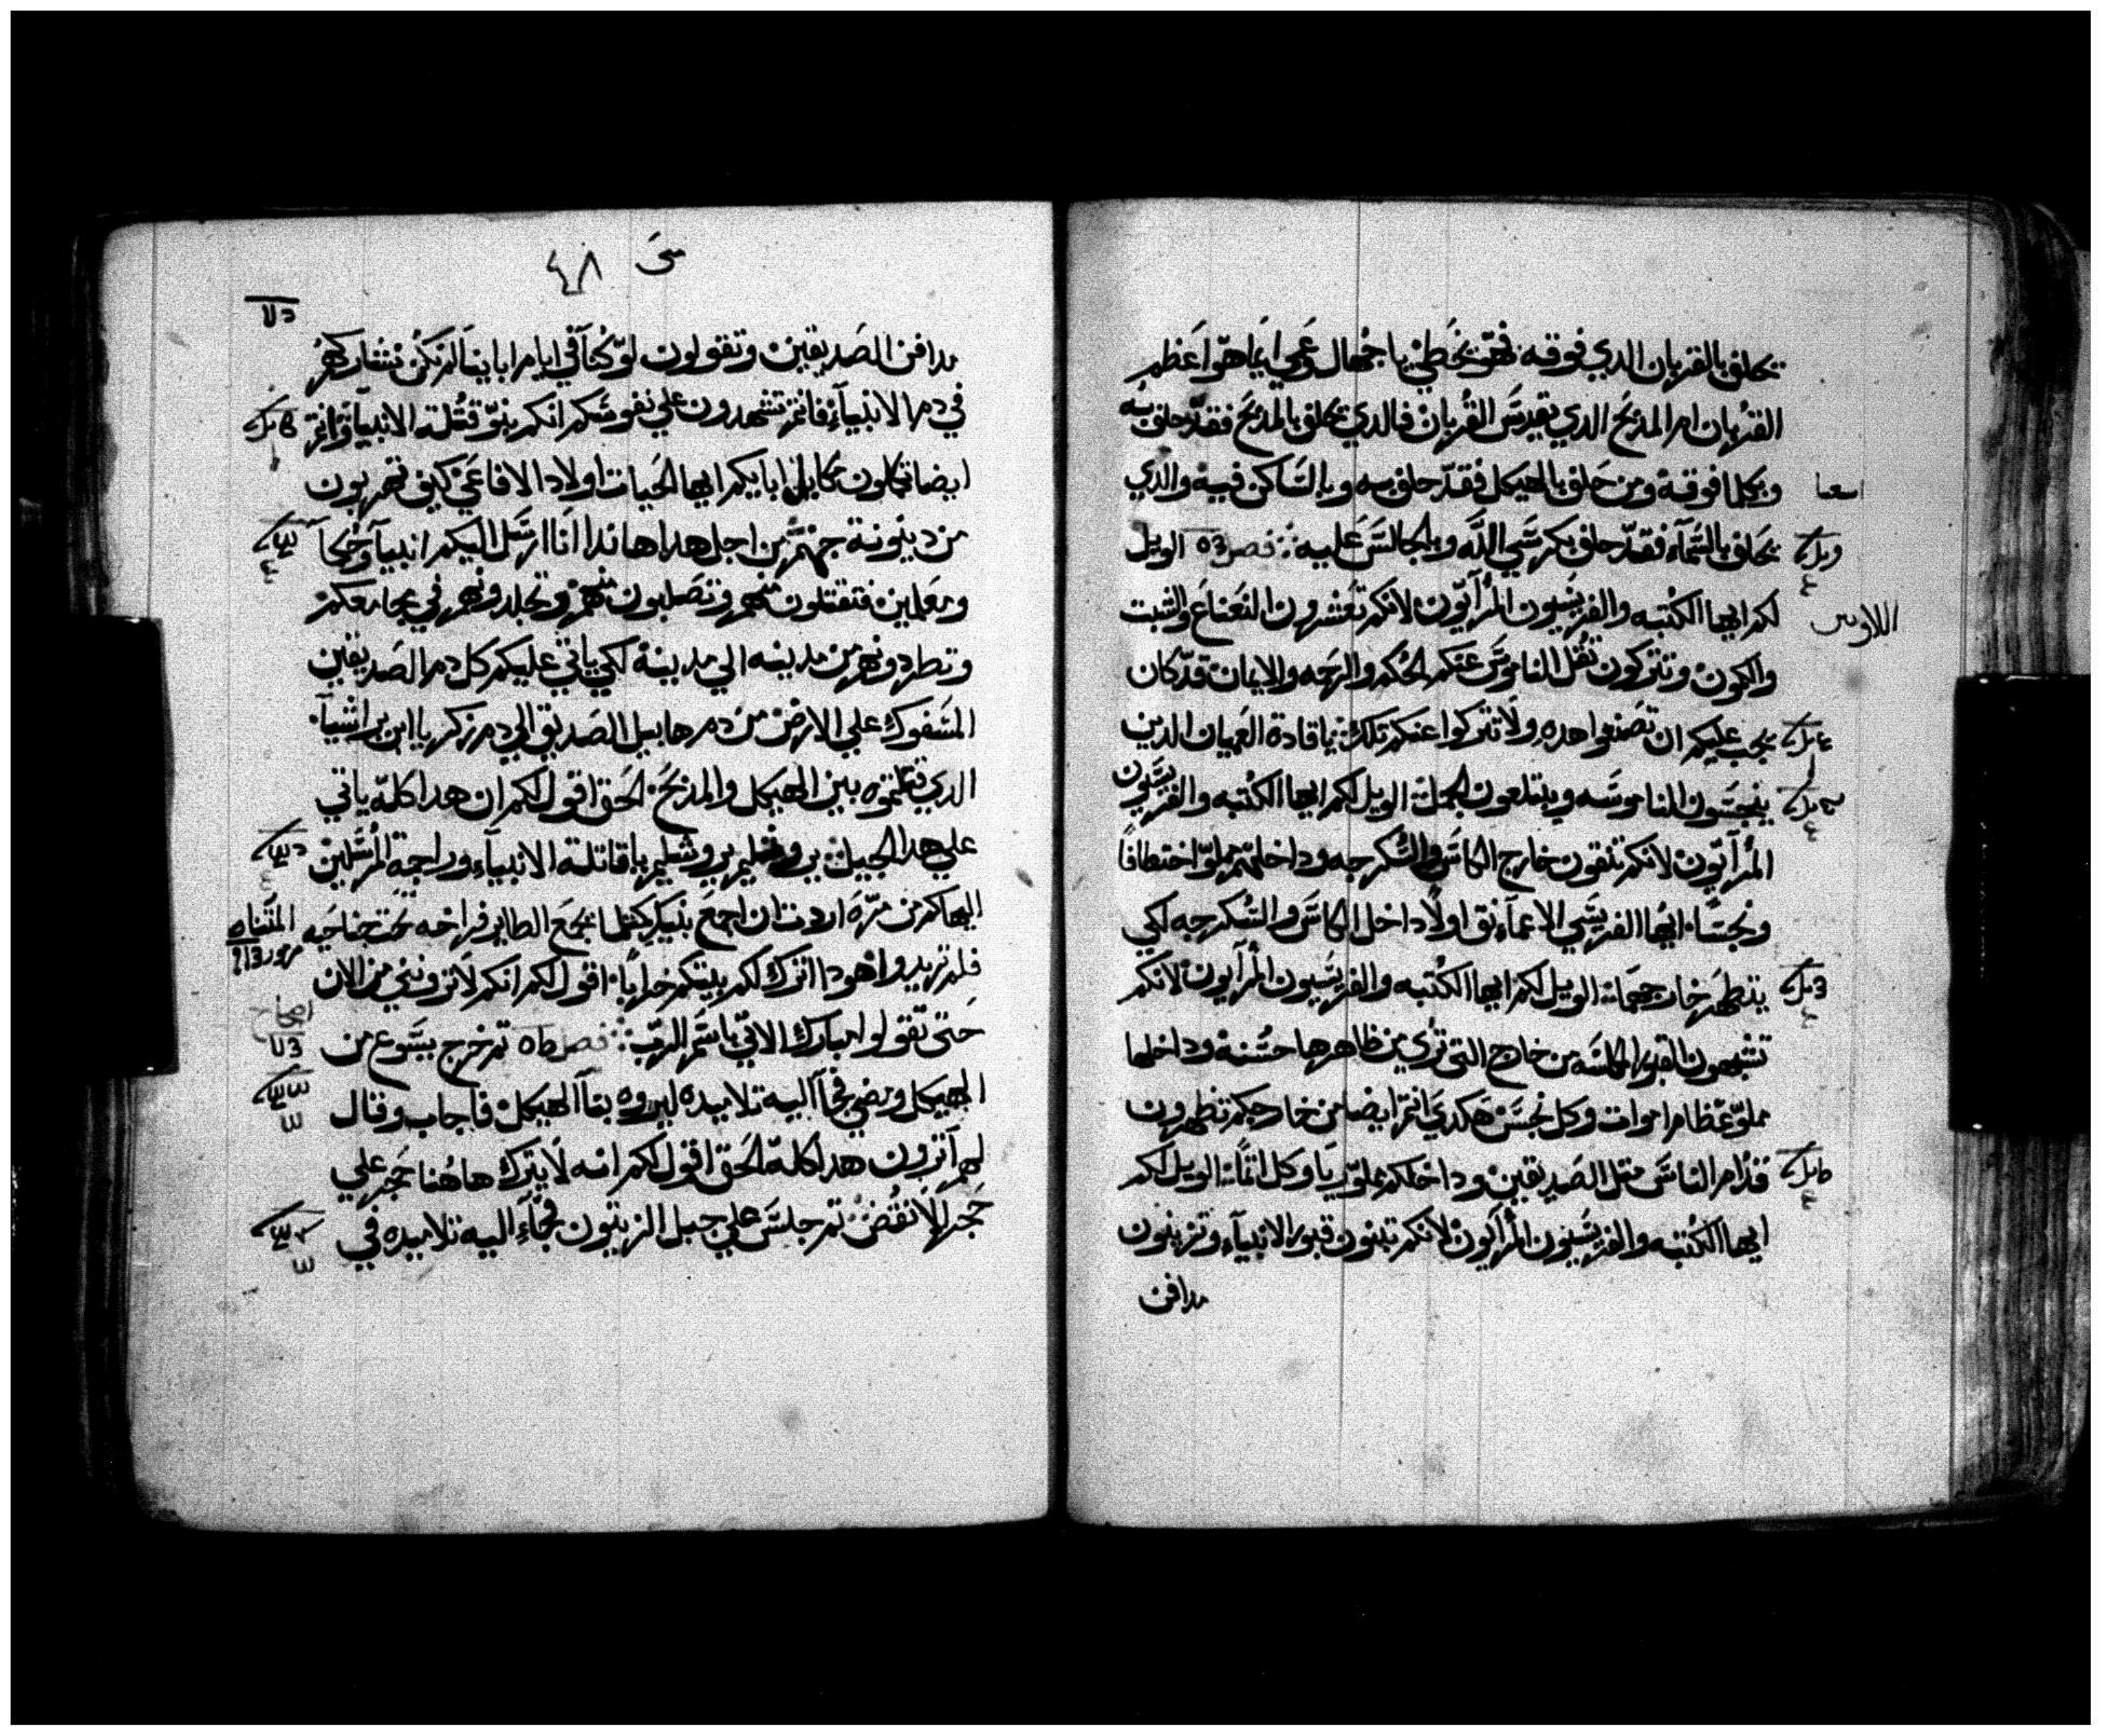 يحلف بالقربان الدي فوقه فهو يخطي يا جهال وعمي ايما هو اعظم
القربان ام المدبح الدي يقدس القربان فالدي يحلف بالمدبح فقد حلف به
وبكلما فوقه ومن حلف بالهيكل فقد حلف به وبالساكن فيه والدي
يحلف بالسماء فقد حلف بكرسي الله وبالجالس عليه فصل الويل
لكم ايها الكتبه والفريسيون المرآيون لانكم تعشرون النعناع والشبت
والكمون وتتركون تقل الناموس عنكم الحكم والرحمه والايمان قد كان
يجب عليكم ان تصنعوا هده ولا تتركوا عنكم تلك يا قادة العميان الدين
الناموسه ويبتلعون الجمل الويل لكم ايها الكتبه والفريسيون
المرآيون لانكم تنقون خارج الكاس والسكرجه وداخلهم مملو اختطافا
ونجسا ايها الفريسي الاعما نق اولا داخل الكاس والسكرجه لكي
يتطهر خارجهما الويل لكم ايها الكتبه والفريسيون المرآيون لانكم
تشبهون القبور المكلسه من خارج التي تري من ظاهرها حسنة وداخلها
مملو عظام اموات وكل نجس هكدي انتم ايضا من خارجكم تظهرون
قدام الناس متل الصديقين وداخلكم مملو ريا وكل اتما الويل لكم
ايها الكتبه والفريسيون المرآيون لانكم تبنون قبور الانبيآء وتزينون
مدافن
متى ٤٨
مدافن الصديقين وتقولون لو كنا في ايام اباينا لم نكن نشاركهم
في دم الانبيآء فانتم تشهدون علي نفوسكم انكم بنو قتلة الانبيآء وانتم
ايضا تكملون مكاييل ابايكم ايها الحيات اولاد الافاعي كيف تهربون
من دينونة جهنم من اجل هدا هاندا انا ارسل اليكم انبيآ وحكمآ
ومعلمين فتقتلون منهم وتصلبون منهم وتجلدونهم في مجامعكم
وتطردونهم من مدينه الي مدينة لكي ياتي عليكم كل دم الصديقين
المسفوك علي الارض من دم هابيل الصديق الي دم زكريا ابن براشيا
الدي قتلتموه بين الهيكل والمدبح الحق اقول لكم ان هدا كله ياتي
علي هدا الجيل يروشليم يروشليم يا قاتلة الانبيآء وراجمة المرسلين
اليها كم من مره اردت ان اجمع بنيك كمتل ما يجمع الطاير فراخه تحت جناحيه
فلم تريدوا هودا اترك لكم بيتكم خرابا اقول لكم انكم لا ترونني من الان
حتي تقولوا مبارك الاتي باسم الرب فصل تم خرج يسوع من
الهيكل ومضي فجآ اليه تلاميده ليروه بنآ الهيكل فاجاب وقال
لهم آترون هدا كله الحق اقول لكم انه لا يترك هاهنا حجر علي
حجر الا نقض تم جلس علي جبل الزيتون فجآء اليه تلاميده في